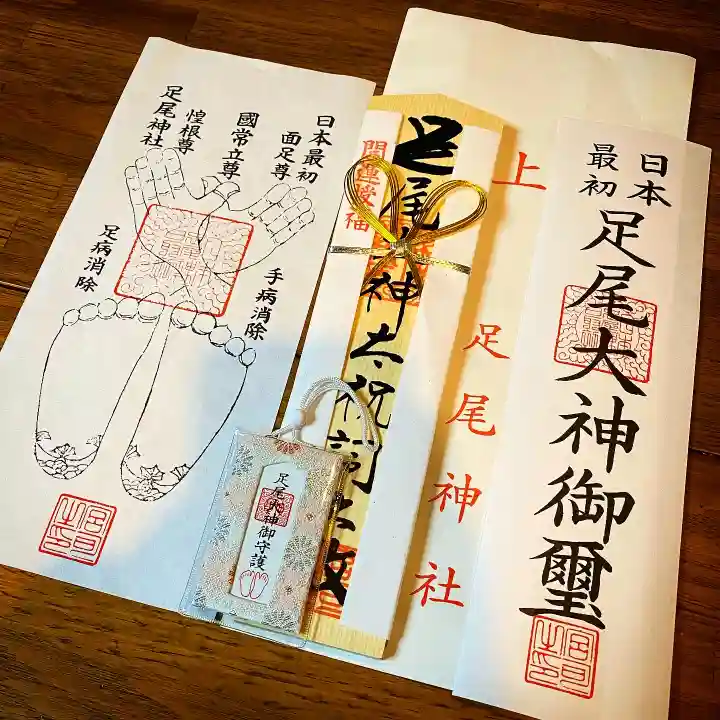 日本最初
面足尊
國常立尊
惶根尊
足尾神社
手病消除
足病消除
開運授福
足尾大神太祝詞
足尾大神御守護
上
足尾神社
日本
最初
足尾大神御璽
宮司
之印
宮司
之印